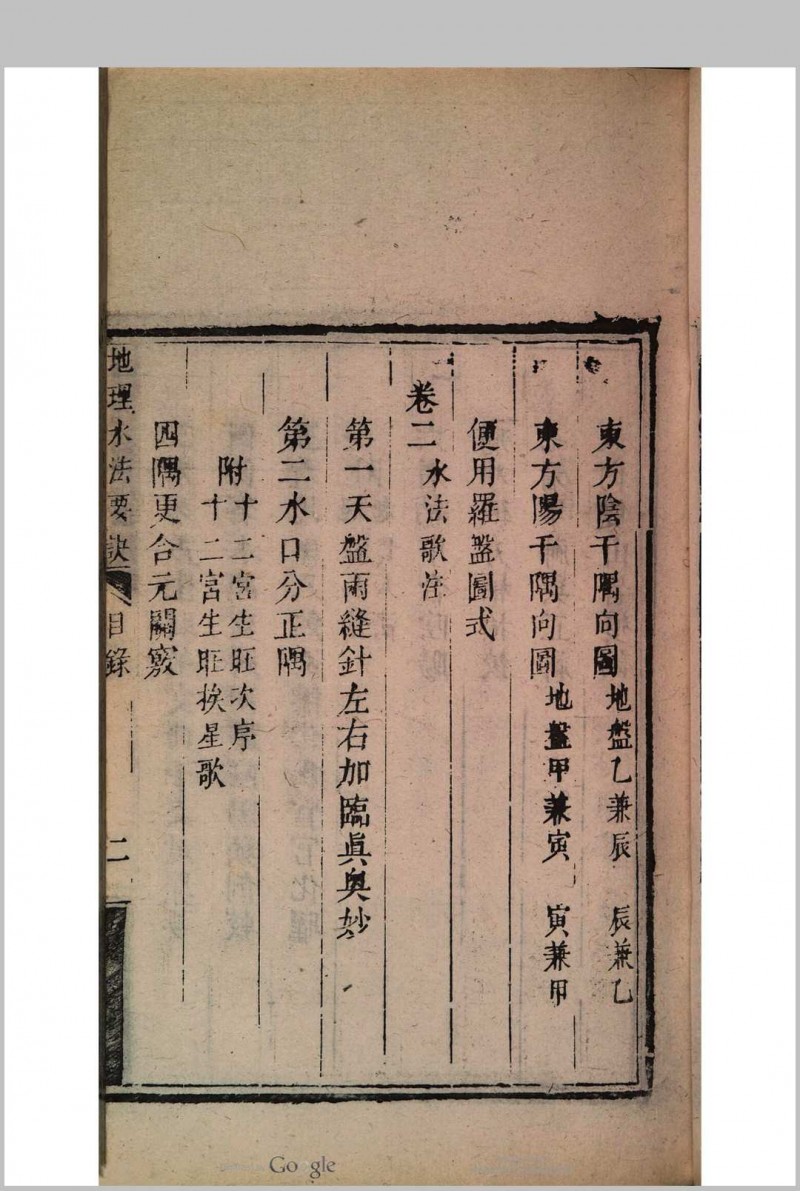 東方陰干隅向圖 地盤乙兼辰 辰兼乙
東方陽干隅向圖 地盤甲兼寅 寅兼甲
便用羅盤圖式
卷二 水法歌注
第一天盤兩縫針左右加臨眞奥妙
第二水口分正隅
附十二宮生旺次序
十二宮生旺挨星歌
四隅更合元關竅
地理水法要訣 目錄 二
Google